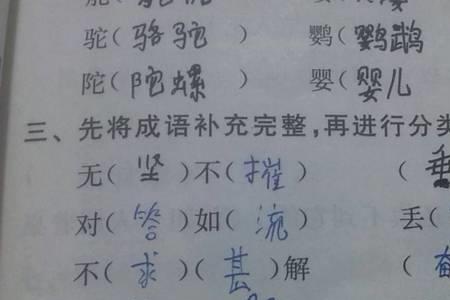 驼（骆驼） 鹦（鹦鹉
陀（陀螺） 婴（婴儿
三、先将成语补充完整，再进行分类
无（坚）不（摧） （垂
对（答）如（流） 丢（
不（求）（甚）解 （奋